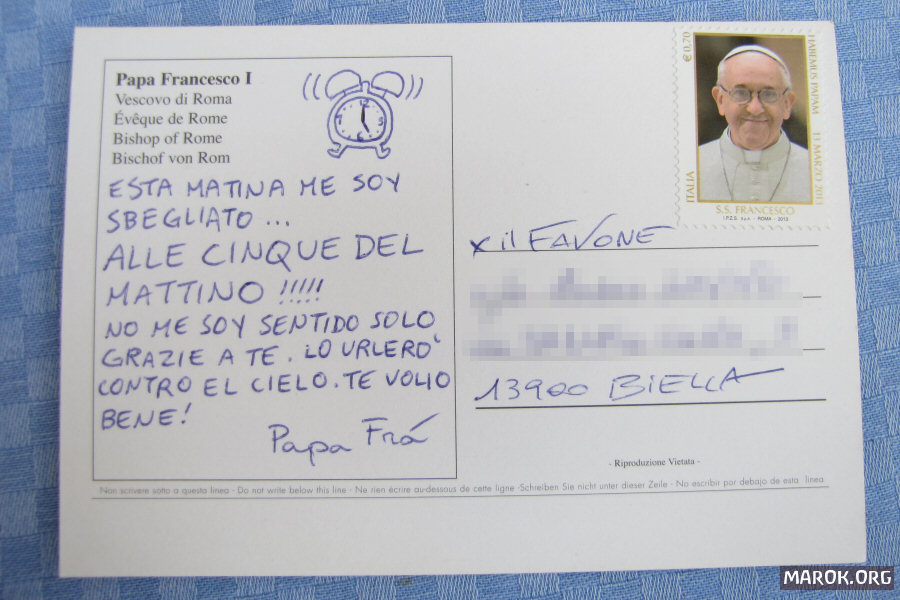 Papa Francesco I
Vescovo di Roma
Évêque de Rome
Bishop of Rome
Bischof von Rom
ESTA MATINA ME SOY
SBEGLIATO...
ALLE CINQUE DEL
MATTINO !!!!!
NO ME SOY SENTIDO SOLO
GRAZIE A TE. LO URLERO'
CONTRO EL CIELO. TE VOLIO
BENE!
Papa Frá
€ 0,70
HABEMUS PAPAM 13 MARZO 2013
ITALIA
S.S. FRANCESCO
I.P.Z.S. S.p.A. - ROMA - 2013
x il FAVONE
13900 BIELLA
- Riproduzione Vietata -
Non scrivere sotto a questa linea - Do not write below this line - Ne rien écrire au-dessous de cette ligne -Schreiben Sie nicht unter dieser Zeile - No escribir por debajo de esta linea
MAROK.ORG